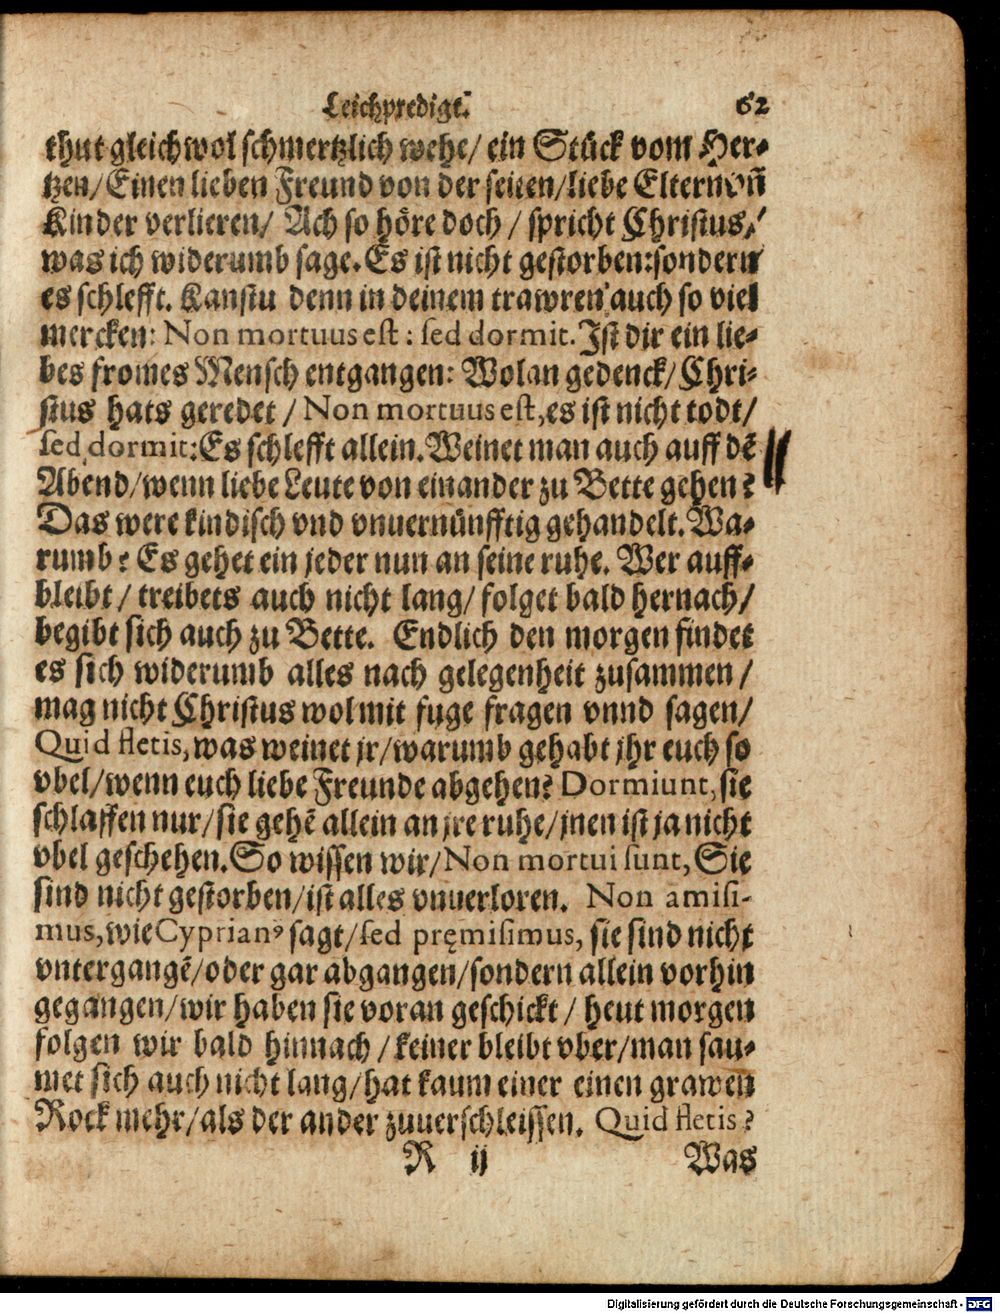 Leichpredigt. 62
thut gleichwol schmertzlich wehe/ ein Stück vom Her-
tzen/Einen lieben Freund von der seiten/liebe Eltern vñ
Kinder verlieren/ Ach so höre doch / spricht Christus/
was ich widerumb sage. Es ist nicht gestorben:sondern
es schlefft. Kanstu denn in deinem trawren auch so viel
mercken: Non mortuus est : sed dormit. Ist dir ein lie-
bes fromes Mensch entgangen: Wolan gedenck/Chri-
stus hats geredet / Non mortuus est, es ist nicht todt/
sed dormit: Es schlefft allein. Weinet man auch auff dē
Abend/wenn liebe Leute von einander zu Bette gehen?
Das were kindisch vnd vnuernünfftig gehandelt. Wa-
rumb? Es gehet ein jeder nun an seine ruhe. Wer auff-
bleibt / treibets auch nicht lang/ folget bald hernach/
begibt sich auch zu Bette. Endlich den morgen findet
es sich widerumb alles nach gelegenheit zusammen /
mag nicht Christus wol mit fuge fragen vnnd sagen/
Quid fletis, was weinet jr/warumb gehabt jhr euch so
vbel/wenn euch liebe Freunde abgehen? Dormiunt, sie
schlaffen nur/sie gehē allein an jre ruhe/jnen ist ja nicht
vbel geschehen. So wissen wir/Non mortui sunt, Sie
sind nicht gestorben/ist alles vnuerloren. Non amisi-
mus, wie Cyprianꝰ sagt/sed pręmisimus, sie sind nicht
vntergangē/oder gar abgangen/sondern allein vorhin
gegangen/wir haben sie voran geschickt / heut morgen
folgen wir bald hinnach /keiner bleibt vber/man sau-
met sich auch nicht lang/hat kaum einer einen grawen
Rock mehr/als der ander zuuerschleissen. Quid fletis?
R ij Was
Digitalisierung gefördert durch die Deutsche Forschungsgemeinschaft - DFG